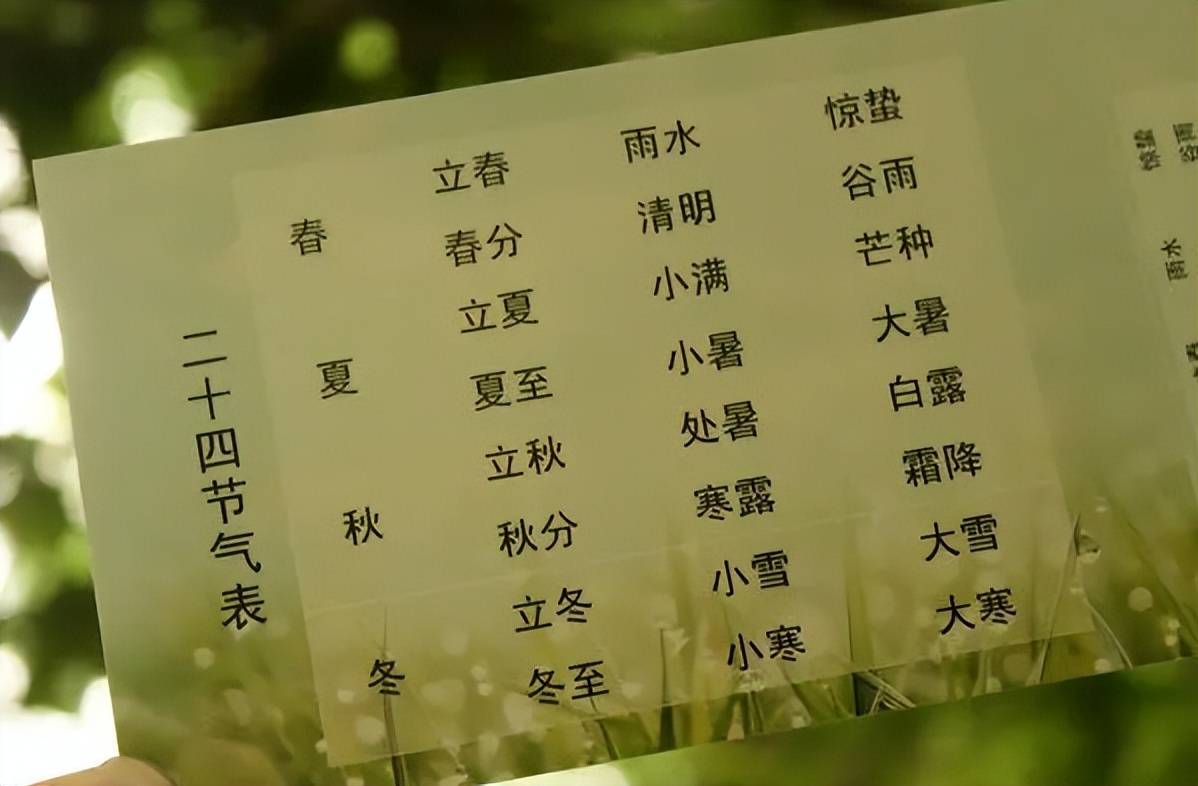 二十四节气表
春
立春 雨水 惊蛰
春分 清明 谷雨
夏
立夏 小满 芒种
夏至 小暑 大暑
秋
立秋 处暑 白露
秋分 寒露 霜降
冬
立冬 小雪 大雪
冬至 小寒 大寒
惊蛰
谷雨
雨水